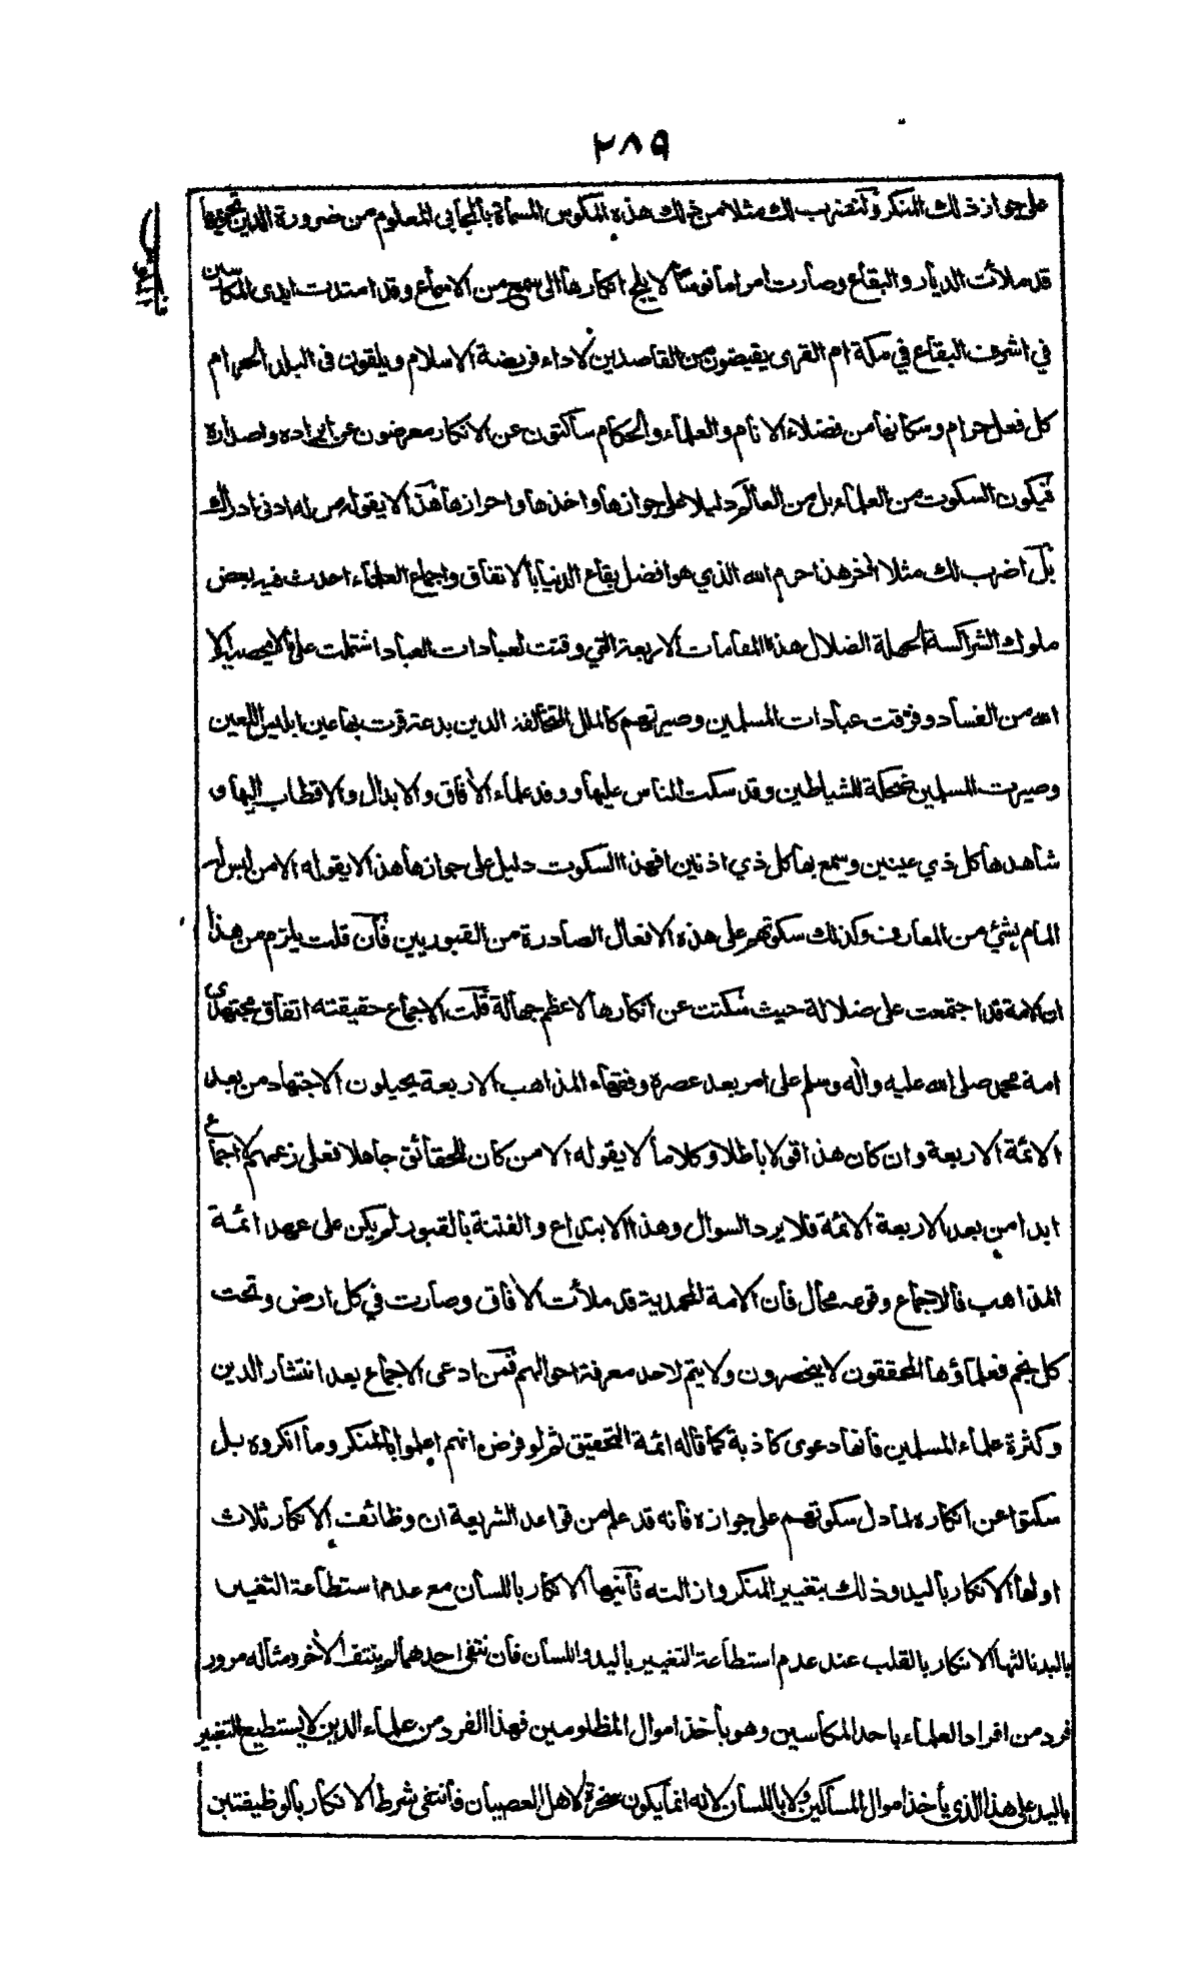 ٢٨٩
على جواز ذلك المنكر ولنضرب لك مثلا من ذلك هذه المكوس المسماة بالمجابي المعلوم من ضرورة الدين تحريمها
قد ملأت الديار والبقاع وصارت امرا مأنوسا لا يلج انكارها الى سمع من الاسماع وقد امتدت ايدى المكاسين
في اشرف البقاع في مكة ام القرى يقبضون من القاصدين لاداء فريضة الاسلام ويلقون فى البلد الحرام
كل فعل حرام وسكانها من فضلاء الانام والعلماء والحكام ساكتون عن الانكار معرضون عن ايراده واصداره
فيكون السكوت من العلماء بل من العالم دليلا على جوازها واخذها واحرازها هذا لا يقوله من له ادنى ادراك
بل اضرب لك مثلا اخر هذا حرم الله الذي هو افضل بقاع الدنيا بالاتفاق واجماع العلماء احدث فيه بعض
ملوك الشراكسة الجهلة الضلال هذه المقامات الاربعة التي وقتت لعبادات العباد اشتملت على ما لا يحصيه الا
الله من الفساد وفرقت عبادات المسلمين وصيرتهم كالملل المختلفة الدين بدعة قرت بها عين ابليس اللعين
وصيرت المسلمين ضحكة للشياطين وقد سكت الناس عليها ووفد علماء الآفاق والابدال والاقطاب اليها و
شاهدها كل ذي عينين وسمع بها كل ذي اذنين افهذا السكوت دليل على جوازها هذا لا يقوله الا من ليس له
المام بشئ من المعارف وكذلك سكوتهم على هذه الافعال الصادرة من القبوريين فان قلت يلزم من هذا
ان الامة قد اجتمعت على ضلالة حيث سكتت عن انكارها لاعظم جهالة قلت الاجماع حقيقته اتفاق مجتهدى
امة محمد صلى الله عليه وآله وسلم على امر بعد عصره وفقهاء المذاهب الاربعة يحيلون الاجتهاد من بعد
الائمة الاربعة وان كان هذا قولا باطلا وكلاما لا يقوله الا من كان للحقائق جاهلا فعلى زعمهم لا اجماع
ابدا من بعد الاربعة الائمة فلا يرد السوال وهذا الابتداع والفتنة بالقبور لم يكن على عهد ائمة
المذاهب فالاجماع وقوعه محال فان الامة المحمدية قد ملأت الآفاق وصارت في كل ارض وتحت
كل نجم فعلماؤها المحققون لا ينحصرون ولا يتم لاحد معرفة احوالهم فمن ادعى الاجماع بعد انتشار الدين
وكثرة علماء المسلمين فانها دعوى كاذبة كما قاله ائمة التحقيق ثم لو فرض انهم اعلموا بالمنكر وما انكروه بل
سكتوا عن انكاره لما دل سكوتهم على جوازه فانه قد علم من قواعد الشريعة ان وظائف الانكار ثلاث
اولها الانكار باليد وذلك بتغيير المنكر وازالته ثانيها الانكار باللسان مع عدم استطاعة التغيير
باليد ثالثها الانكار بالقلب عند عدم استطاعة التغيير باليد واللسان فان نتفى احدهما لم ينتف الآخر ومثاله مرور
فرد من افراد العلماء باحد المكاسين وهو يأخذ اموال المظلومين فهذا الفرد من علماء الدين لا يستطيع التغيير
باليد على هذا الذى يأخذ اموال المساكين ولا باللسان لانه انما يكون سخرة لاهل العصيان فانتفى شرط الانكار بالوظيفتين